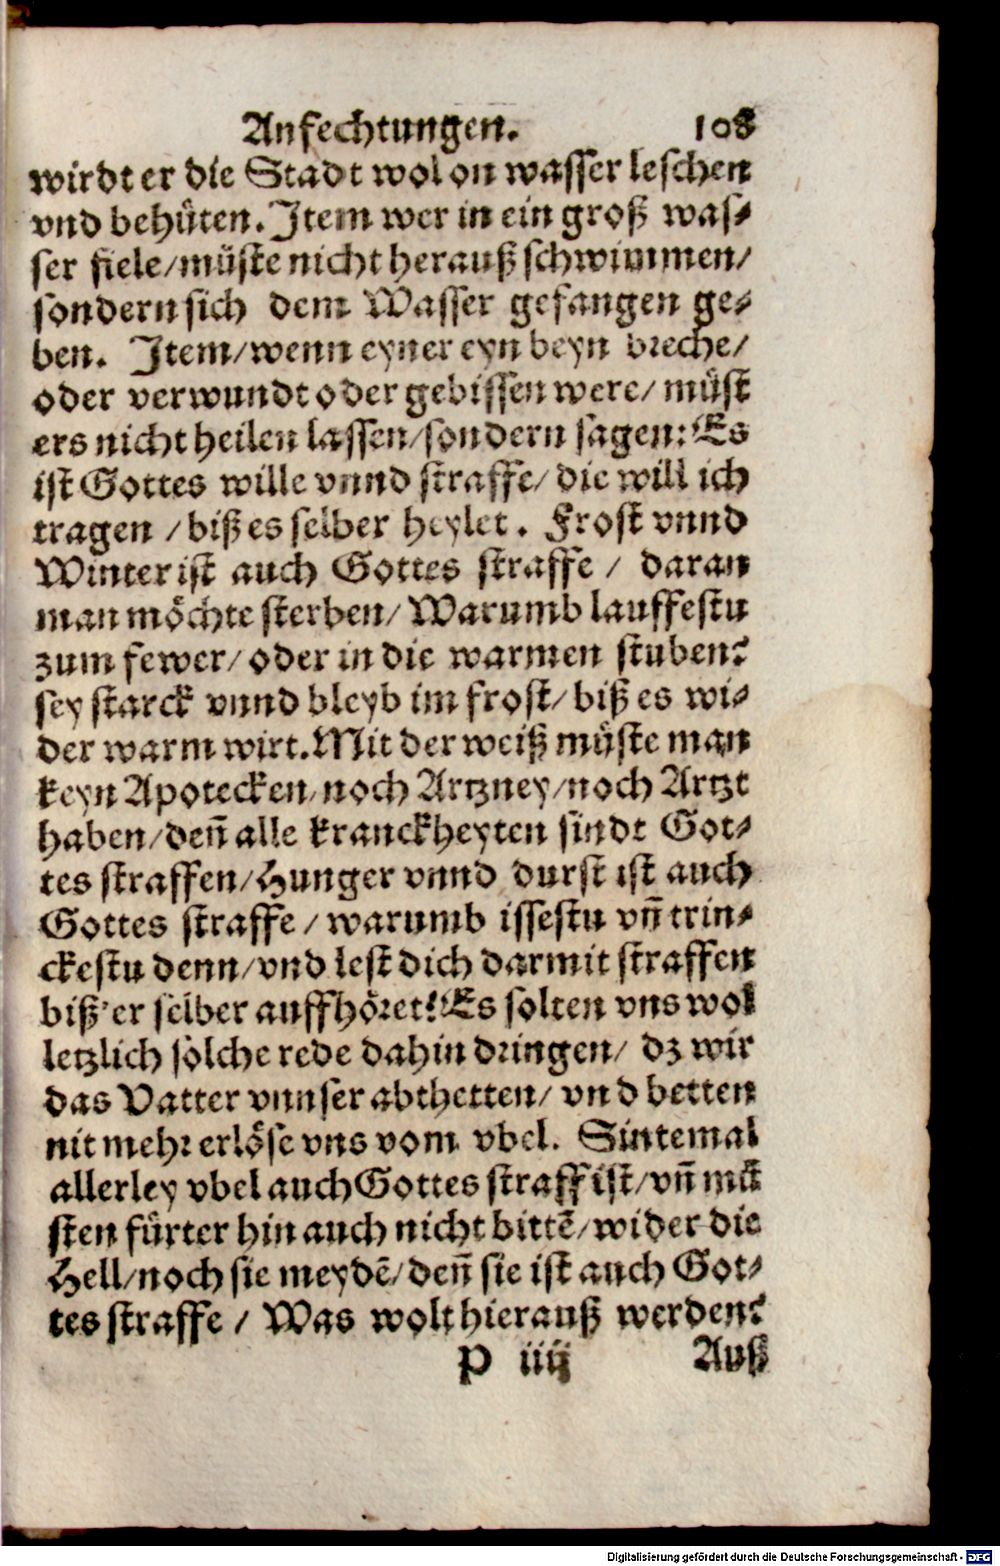 Anfechtungen. 108
wirdt er die Stadt wol on wasser leschen
vnd behüten. Item wer in ein groß was⸗
ser fiele/müste nicht herauß schwimmen/
sondern sich dem Wasser gefangen ge⸗
ben. Item/wenn eyner eyn beyn breche/
oder verwundt oder gebissen were/ müst
ers nicht heilen lassen/sondern sagen: Es
ist Gottes wille vnnd straffe/ die will ich
tragen / biß es selber heylet. Frost vnnd
Winter ist auch Gottes straffe / daran
man möchte sterben/ Warumb lauffestu
zum fewer/ oder in die warmen stuben?
sey starck vnnd bleyb im frost/ biß es wi⸗
der warm wirt. Mit der weiß müste man
keyn Apotecken/noch Artzney/noch Artzt
haben/den̄ alle kranckheyten sindt Got⸗
tes straffen/Hunger vnnd durst ist auch
Gottes straffe / warumb issestu vn̄ trin⸗
ckestu denn/vnd lest dich darmit straffen
biß er selber auffhöret? Es solten vns wol
letzlich solche rede dahin dringen/ dz wir
das Vatter vnnser abthetten/ vnd betten
nit mehr erlöse vns vom vbel. Sintemal
allerley vbel auch Gottes straff ist/vn̄ mü
sten fürter hin auch nicht bittē/wider die
Hell/noch sie meydē/den̄ sie ist auch Got⸗
tes straffe / Was wolt hierauß werden?
P iiij Auß
Digitalisierung gefördert durch die Deutsche Forschungsgemeinschaft - DFG